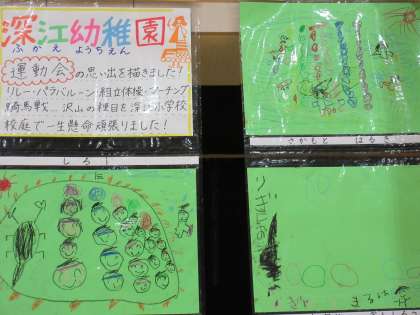 深江幼稚園
ふかえ ようちえん
運動会の思い出を描きました!
リレー・パラバルーン・組立体操・マーチング
騎馬戦…沢山の種目を深江小学校
校庭で一生懸命頑張りました!
さかもと はる
しろ